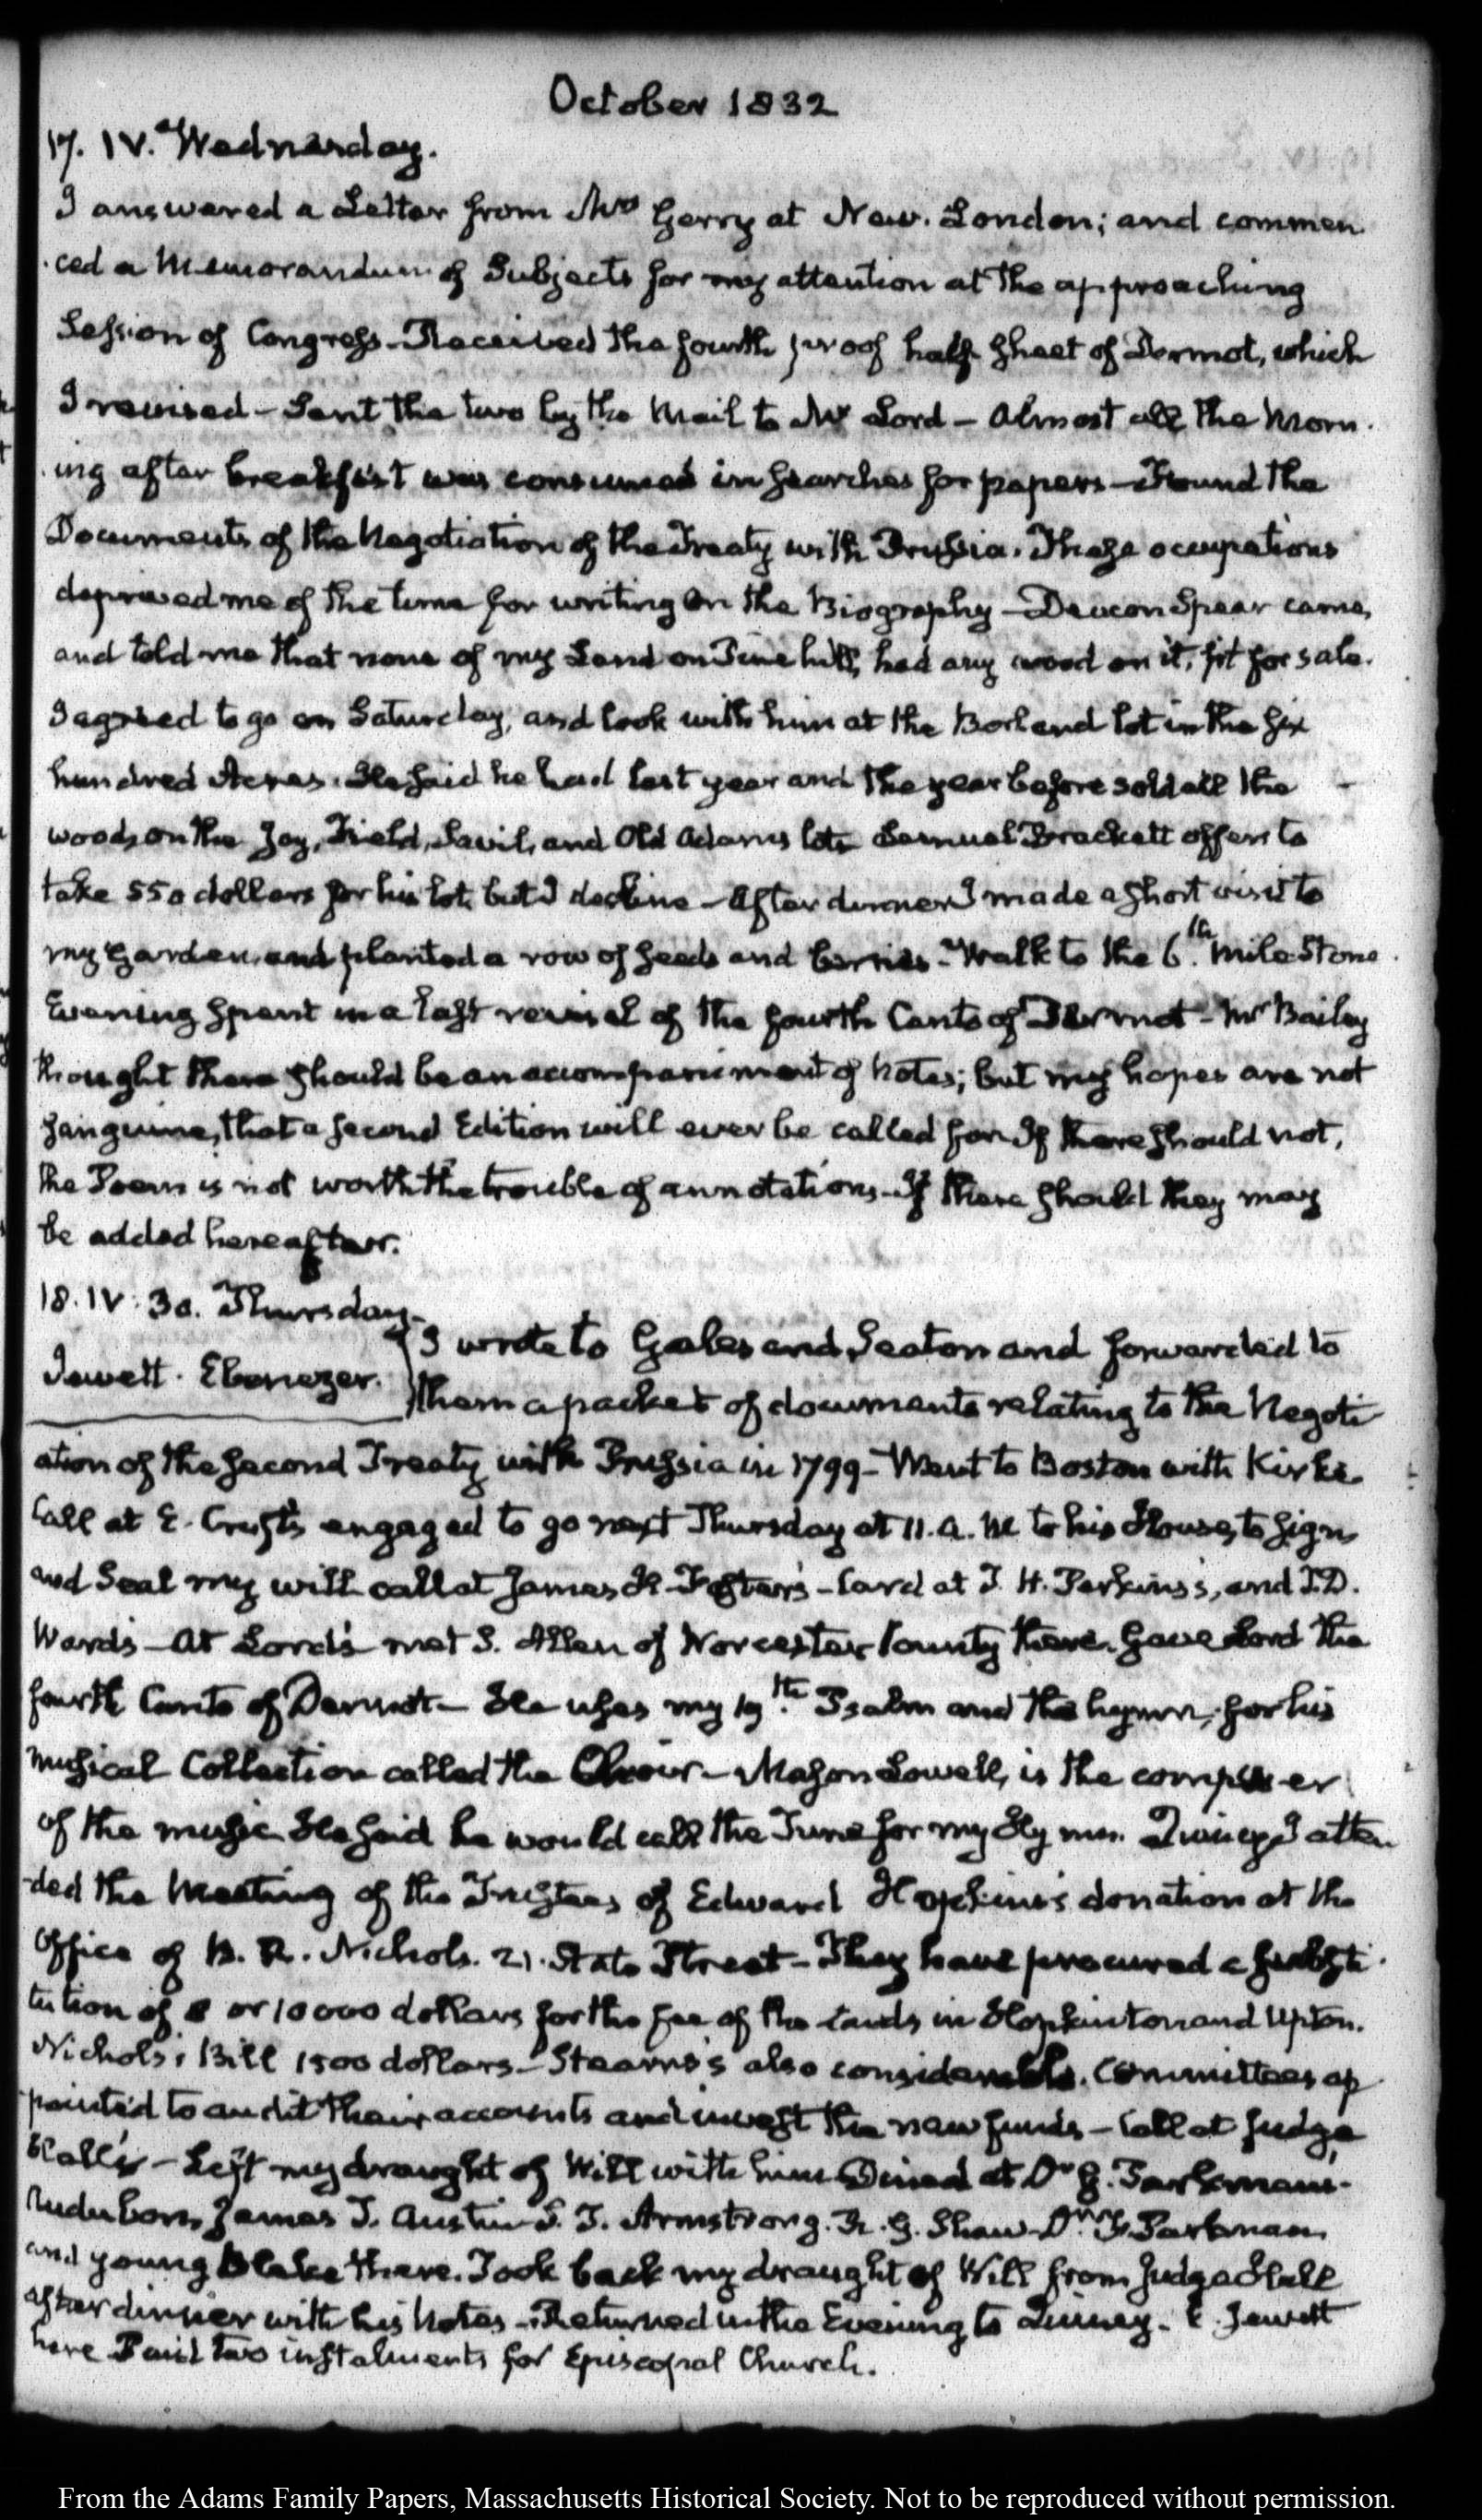 October 1832
17. IV. Wednesday.
I answered a Letter from Mrs Gerry at New-London; and commen
-ced a Memorandum of Subjects for my attention at the approaching
Session of Congress. Received the fourth proof half sheet of Dermot, which
I revised – Sent the two by the Mail to Mr Lord – Almost all the Morn-
-ing after breakfast was consumed in searches for papers – Found the
Documents of the Negotiation of the Treaty with Prussia. These occupations
deprived me of the time for writing on the Biography – Deacon Spear came,
and told me that none of my Land on Pine hill, had any wood on it, fit for sale.
I agreed to go on Saturday, and look with him at the Borland lot in the six
hundred Acres. He said he had last year and the year before sold all the
woods on the Joy, Field, Savil, and Old Adams lots Samuel Brackett offers to
take 550 dollars for his lot, but I decline – After dinner I made a short visit to
my Garden, and planted a row of seeds and berries – Walk to the 6.th mile Stone.
Evening spent in a last revisal of the fourth Canto of Dermot – Mr Bailey
thought there should be an accompaniment of Notes; but my hopes are not
sanguine, that a second Edition will ever be called for. If there should not,
the Poem is not worth the trouble of annotations – If there should they may
be added hereafter.
18. IV. 30. Thursday.
Jewett. Ebenezer.
I wrote to Gales and Seaton and forwarded to
them a packet of documents relating to the Negoti
ation of the second Treaty with Prussia in 1799 – Went to Boston with Kirke.
Call at E. Cruft's engaged to go next Thursday at 11. A. M to his House, to sign
and Seal my will call at James H. Foster's – Card at T. H. Perkins's, and T. D.
Ward's – At Lord's met S. Allen of Worcester County there. Gave Lord the
fourth Canto of Dermot – He uses my 19.th Psalm and the hymn, for his
musical Collection called the Choir – Mason Lowell, is the composer
of the music He said he would call the Tune for my Hymn. Quincy I atten
-ded the Meeting of the Trustees of Edward Hopkins's donation at the
Office of B. R. Nichols. 21. State Street – They have procured a substi-
tution of 8 or 10000 dollars for the fee of the lands in Hopkinton and Upton.
Nichols's Bill 1500 dollars – Stearns's also considerable. Committees ap
pointed to audit their accounts and invest the new funds – Call at Judge
Hall's – Left my draught of Will with him Dined at Dr G. Parkman's –
Audubon, James T. Austin S. T. Armstrong. R. G. Shaw Dr Parkman
and young Blake there. Took back my draught of Will from Judge Hall
after dinner with his Notes – Returned in the Evening to Quincy. E. Jewett
here Paid two instalments for Episcopal Church.
From the Adams Family Papers, Massachusetts Historical Society. Not to be reproduced without permission.